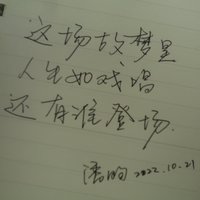 这场故梦里
人生如戏唱
还有谁登场.
潘昫 2022.10.21